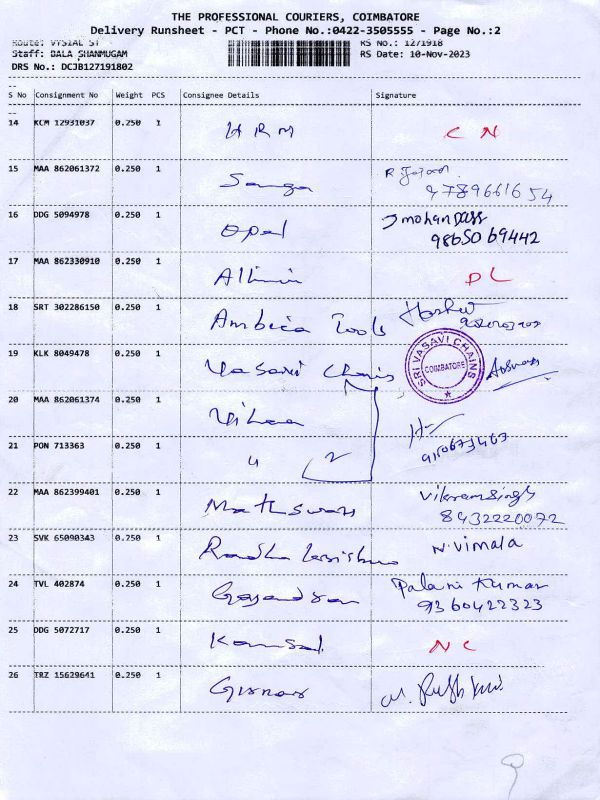 THE PROFESSIONAL COURIERS, COIMBATORE
Delivery Runsheet - PCT - Phone No.:0422-3505555 - Page No.:2
Route: VYSIAL ST RS No.: 1271918
Staff: BALA SHANMUGAM RS Date: 10-Nov-2023
DRS No.: DCJB127191802
S No Consignment No Weight PCS Consignee Details Signature
14 KCM 12931037 0.250 1 H R M C N
15 MAA 862061372 0.250 1 9789661654
16 DDG 5094978 0.250 1 Opal J mohan Dass
9865069442
17 MAA 862330910 0.250 1 D L
18 SRT 302286150 0.250 1 Ambica Tools
19 KLK 8049478 0.250 1 Vasavi Chains SRI VASAVI CHAINS COIMBATORE
20 MAA 862061374 0.250 1
21 PON 713363 0.250 1 " 2
22 MAA 862399401 0.250 1 Vikramsingh
8432220072
23 SVK 65090343 0.250 1 Radha N. Vimala
24 TVL 402874 0.250 1 Palani Kumar
9360422323
25 DDG 5072717 0.250 1 Kamsal N C
26 TRZ 15629641 0.250 1 Girnar M.